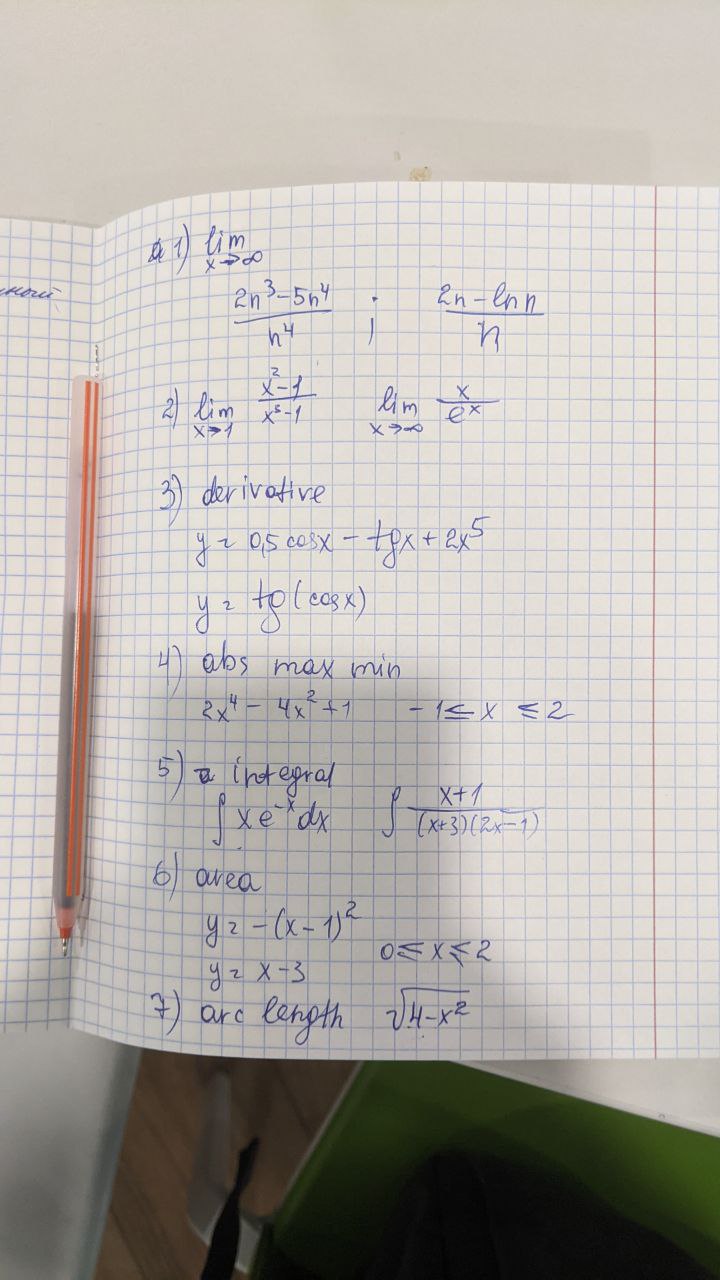 1) lim
x→∞
2n³-5n⁴ / n⁴ ; 2n-ln n / n
2) lim x→1 x²-1 / x³-1 lim x→∞ x / eˣ
3) derivative
y = 0,5 cosx - tgx + 2x⁵
y = tg(cosx)
4) abs max min
2x⁴ - 4x²+1 -1≤ x ≤2
5) integral
∫ x e⁻ˣ dx ∫ x+1 / (x+3)(2x-1)
6) area
y = -(x-1)²
0≤ x ≤2
y = x-3
7) arc length √4-x²